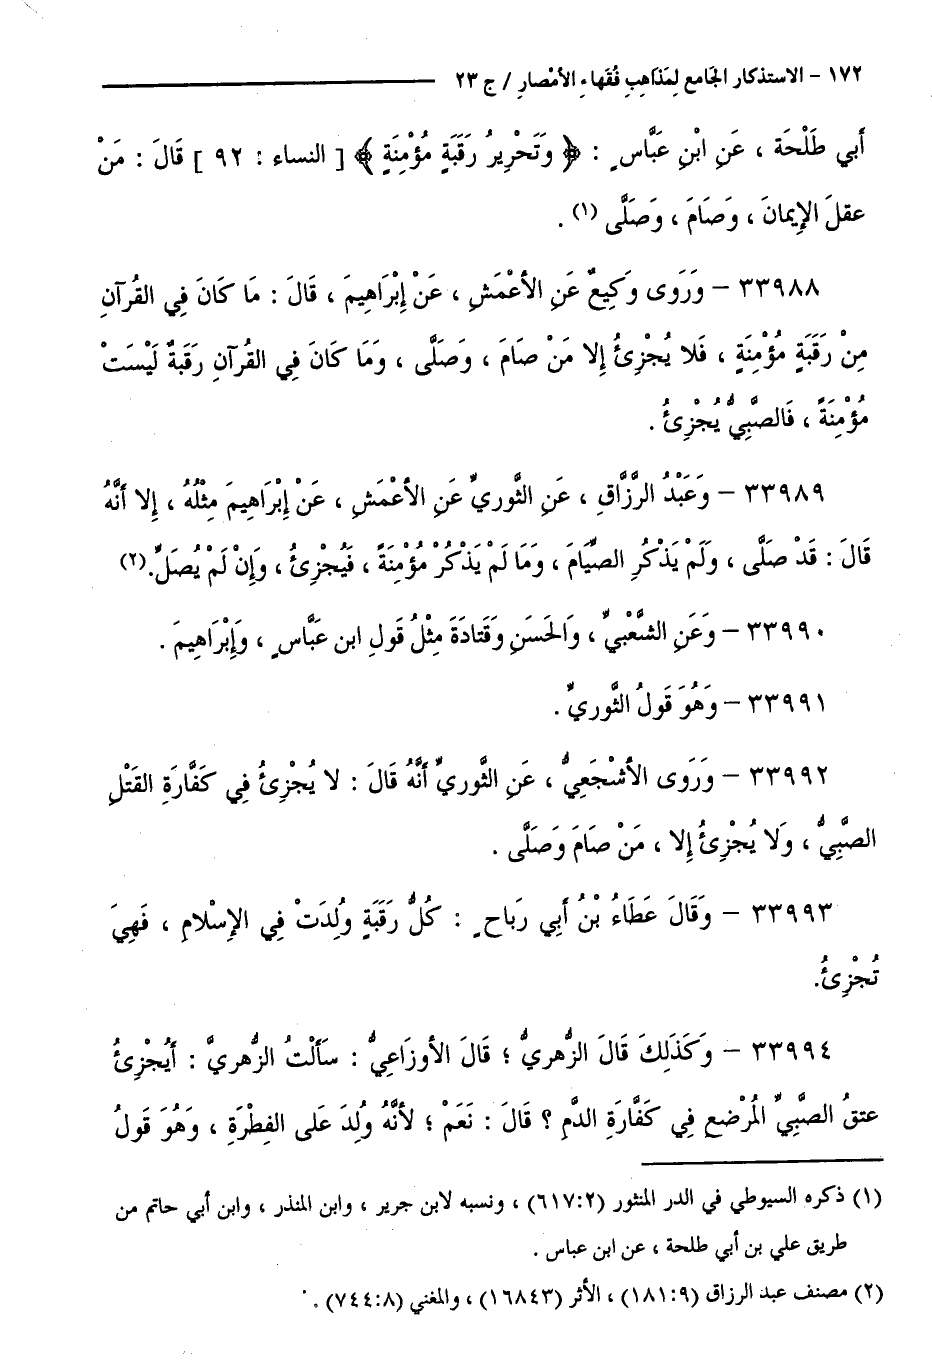 ١٧٢ - الاستذكار الجَامع لِمَذاهِبِ فُقَهاءِ الأمْصارِ / ج ٢٣
أبي طَلْحَة ، عَنِ ابْنِ عَبَّاسٍ : ﴿ وَتَحْرِيرُ رَقَبَةٍ مُؤْمِنَةٍ ﴾ [ النساء : ٩٢ ] قَالَ : مَنْ
عقلَ الإِيمانَ ، وَصَامَ ، وَصَلَّى (١) .
٣٣٩٨٨ - وَرَوى وَكِيعٌ عَنِ الأعْمَشِ ، عَنْ إِبْرَاهِيمَ ، قَالَ : مَا كَانَ فِي القُرآنِ
مِنْ رَقَبَةٍ مُؤْمِنَةٍ ، فَلا يُجْزِئُ إِلا مَنْ صَامَ ، وَصَلَّى ، وَمَا كَانَ فِي القُرآنِ رَقَبَةٌ لَيْسَتْ
مُؤْمِنَةً ، فَالصَّبِيُّ يُجْزِئُ .
٣٣٩٨٩ - وَعَبْدُ الرَّزَّاقِ ، عَنِ الثَّوريِّ عَنِ الأعْمَشِ ، عَنْ إِبْرَاهِيمَ مِثْلُهُ ، إِلا أنَّهُ
قَالَ : قَدْ صَلَّى ، وَلَمْ يَذْكُرِ الصِّيَامَ ، وَمَا لَمْ يَذْكُرْ مُؤْمِنَةً ، فَيُجْزِئُ ، وَإِنْ لَمْ يُصَلِّ.(٢)
٣٣٩٩٠ - وَعَنِ الشَّعْبِيِّ ، وَالحَسَنِ وَقَتادَةَ مِثْلُ قَولِ ابن عَبَّاسٍ ، وَإِبْرَاهِيمَ .
٣٣٩٩١ - وَهُوَ قَولُ الثَّوريِّ .
٣٣٩٩٢ - وَرَوى الأشْجَعِيُّ ، عَنِ الثَّوريِّ أنَّهُ قَالَ : لا يُجْزِئُ فِي كَفَّارَةِ القَتْلِ
الصَّبِيُّ ، وَلَا يُجْزِئُ إِلا ، مَنْ صَامَ وَصَلَّى .
٣٣٩٩٣ - وَقَالَ عَطَاءُ بْنُ أبِي رَباحٍ : كُلُّ رَقَبَةٍ وُلِدَتْ فِي الإِسْلامِ ، فَهِيَ
تُجْزِئُ.
٣٣٩٩٤ - وَكَذَلِكَ قَالَ الزُّهريُّ ؛ قَالَ الأوزَاعِيُّ : سَألْتُ الزُّهريَّ : أَيُجْزِئُ
عتقُ الصَّبِيِّ المُرْضعِ فِي كَفَّارَةِ الدَّمِ ؟ قَالَ : نَعَمْ ؛ لأنَّهُ وُلِدَ عَلى الفِطْرَةِ ، وَهُوَ قَولُ
(١) ذكره السيوطي في الدر المنثور (٦١٧:٢) ، ونسبه لابن جرير ، وابن المنذر ، وابن أبي حاتم من
طريق علي بن أبي طلحة ، عن ابن عباس .
(٢) مصنف عبد الرزاق (١٨١:٩) ، الأثر (١٦٨٤٣) ، والمغني (٧٤٤:٨) .